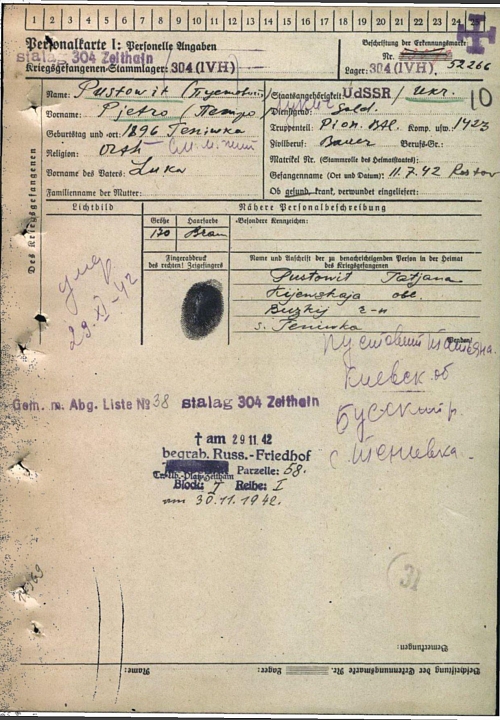 1 2 3 4 5 6 7 8 9 10 11 12 13 14 15 16 17 18 19 20 21 22 23 24 25
Personalkarte I: Personelle Angaben
stalag 304 Zeithain
Kriegsgefangenen-Stammlager: 304 (IVH)
Beschriftung der Erkennungsmarke
Nr. 52266
Lager: 304 (IVH)
Des Kriegsgefangenen
Name: Pustowit
Vorname: Pjotro / Петро /
Geburtstag und -ort: 1896 Teniwka
Religion: Orth
Vorname des Vaters: Luka
Familienname der Mutter:
Staatsangehörigkeit: UdSSR / Ukr. 10
Dienstgrad: Sold.
Truppenteil: Pion. Btl. Komp. usw. 1423
Zivilberuf: Bauer Berufs-Gr.:
Matrikel Nr. (Stammrolle des Heimatstaates):
Gefangennahme (Ort und Datum): 11.7.42 Rostov
Ob gesund, krank, verwundet eingeliefert:
Lichtbild
Nähere Personalbeschreibung
Größe Haarfarbe Besondere Kennzeichen:
170 Braun
Fingerabdruck des rechten! Zeigefingers
Name und Anschrift der zu benachrichtigenden Person in der Heimat
des Kriegsgefangenen
Pustowit Tatjana
Kijewskaja obl.
Buzkij r-n
s. Teniwka
умер
29-XI-42
Пустовит Татьяна
Киевск об
Бусский р.
с. Теневка.
Gem. m. Abg. Liste № 38 stalag 304 Zeithain
† am 29 11. 42
begrab. Russ.-Friedhof
Tr.-Üb.-Platz-Zeithain Parzelle: 58.
Block: I Reihe: I
am 30.11.1942.
31
Bemerkungen:
Name: Lager: Beschriftung der Erkennungsmarke Nr.